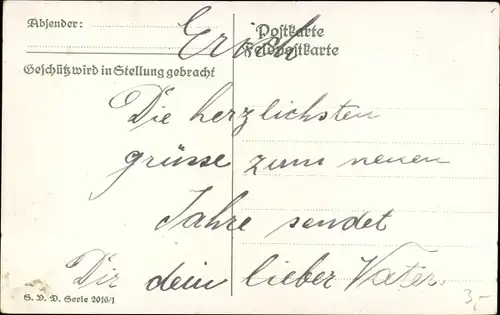 Absender:
Erich
Postkarte
Feldpostkarte
Geschütz wird in Stellung gebracht
Die herzlichsten
grüsse zum neuen
Jahre sendet
Dir dein lieber Vater.
S. V. D. Serie 2016/1
3,-